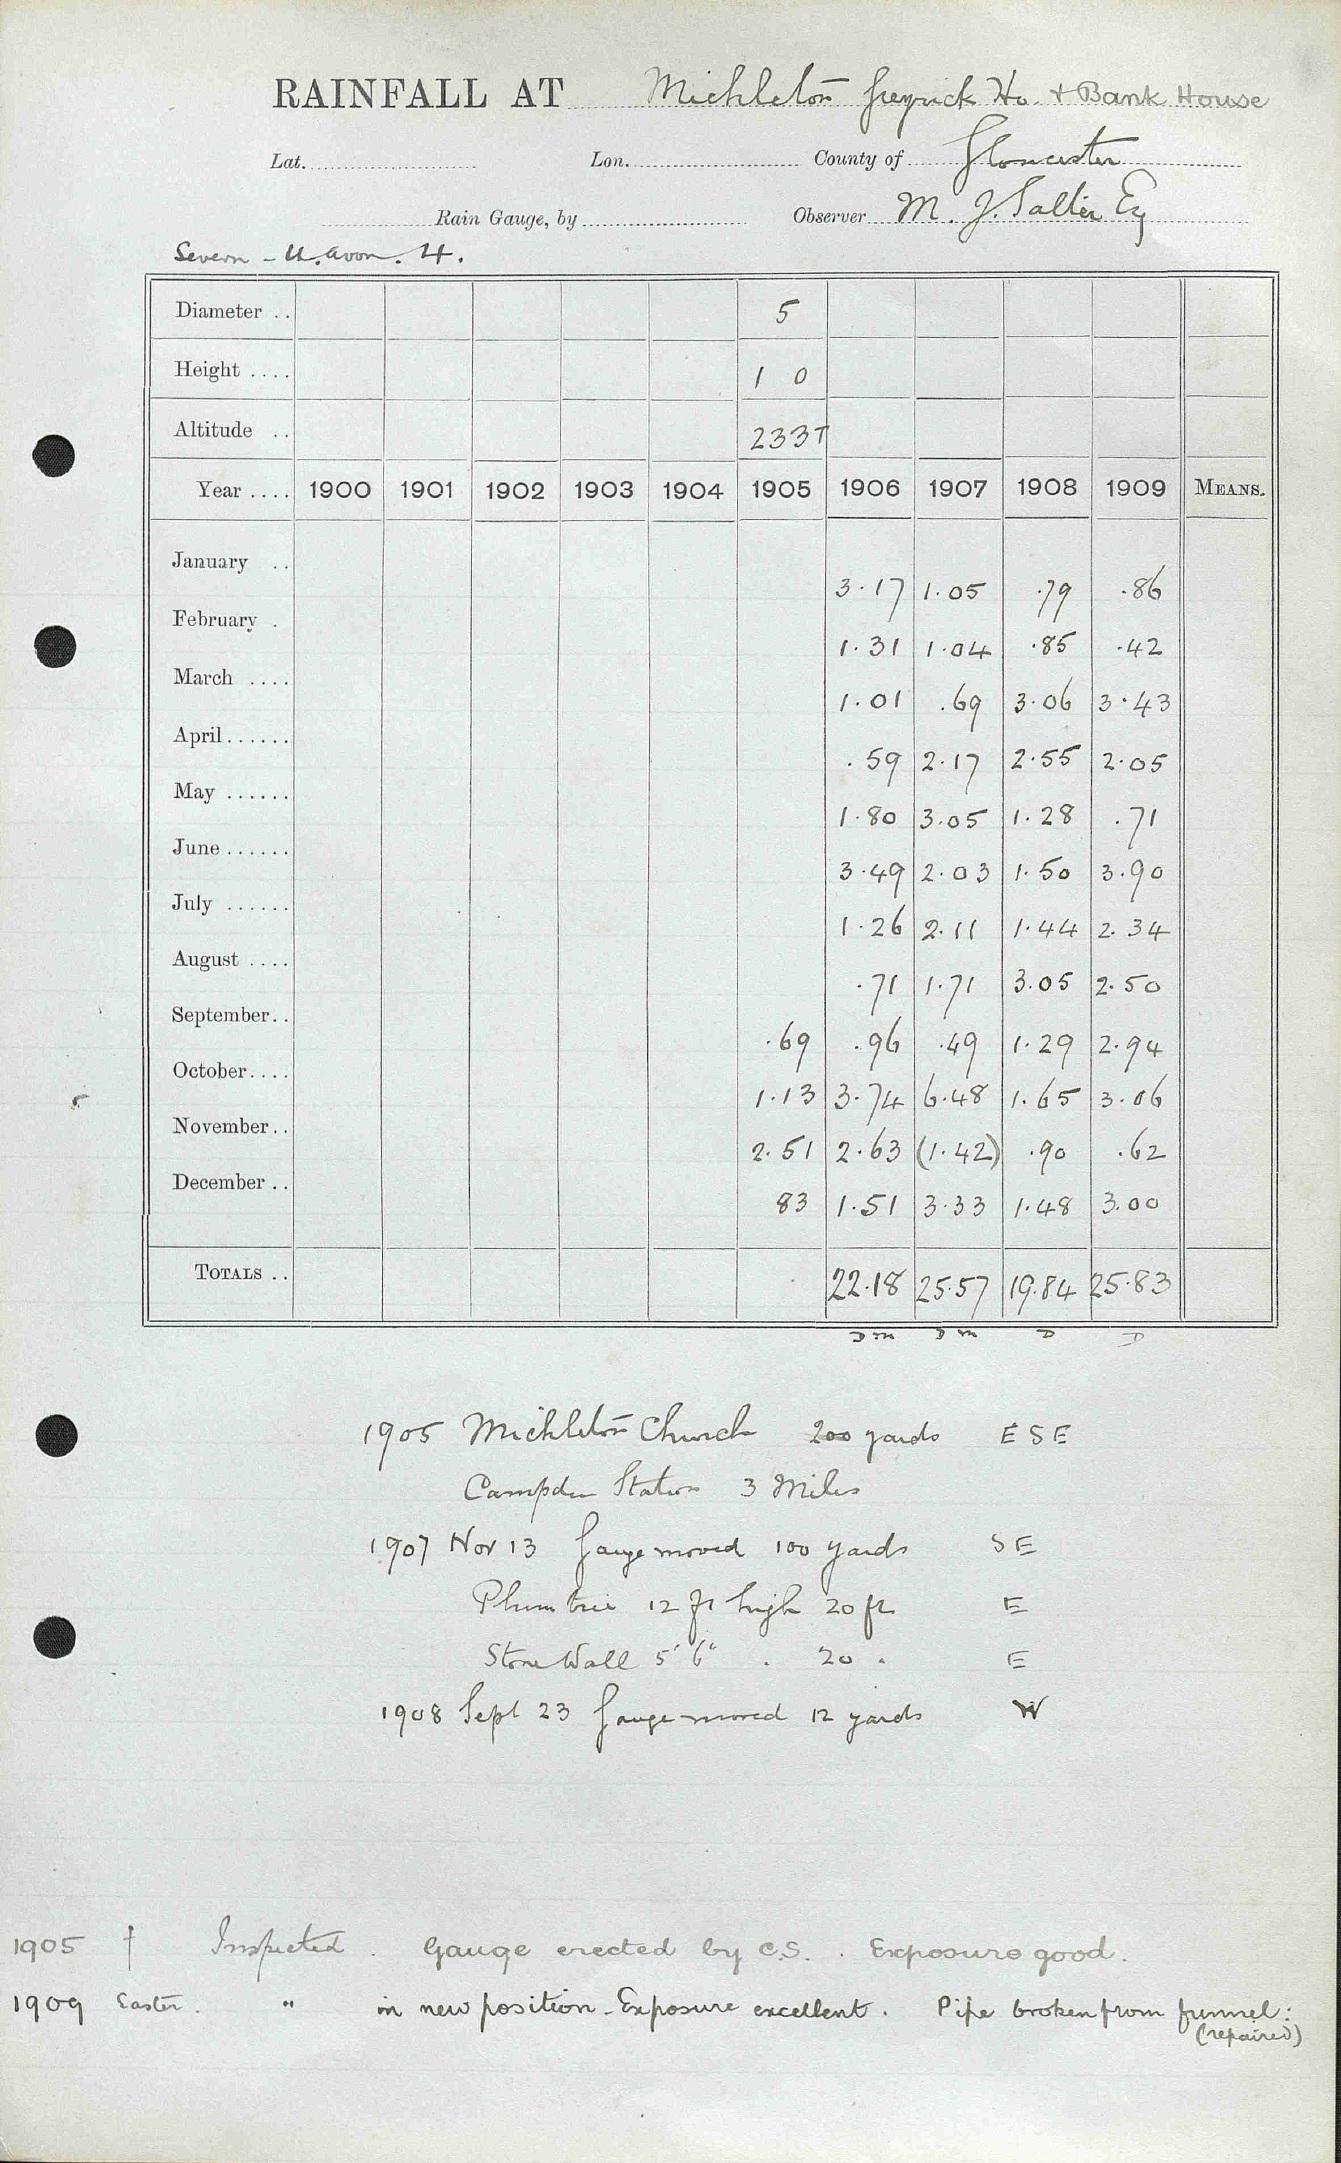 RAINFALL AT Mickleton Greyrick Ho. & Bank House
Lat. Lon. County of Gloucester
Rain Gauge, by Observer M. J. Salter Esq
Severn - U. Avon. 4.
Diameter .. 5
Height .... 1 0
Altitude .. 233T
Year .... 1900 1901 1902 1903 1904 1905 1906 1907 1908 1909 MEANS.
January .. 3.17 1.05 .79 .86
February . 1.31 1.04 .85 .42
March .... 1.01 .69 3.06 3.43
April...... .59 2.17 2.55 2.05
May ...... 1.80 3.05 1.28 .71
June...... 3.49 2.03 1.50 3.90
July ...... 1.26 2.11 1.44 2.34
August .... .71 1.71 3.05 2.50
September.. .69 .96 .49 1.29 2.94
October.... 1.13 3.74 6.48 1.65 3.06
November.. 2.51 2.63 (1.42) .90 .62
December .. 83 1.51 3.33 1.48 3.00
TOTALS .. 22.18 25.57 19.84 25.83
D m D m D D
1905 Mickleton Church 200 yards E S E
Campden Station 3 Miles
1907 Nov 13 Gauge moved 100 yards S E
Plum tree 12 ft high 20 ft E
Stone Wall 5' 6" . 20 . E
1908 Sept 23 Gauge moved 12 yards W
1905 † Inspected. Gauge erected by C.S. . Exposure good.
1909 Easter. " in new position - Exposure excellent. Pipe broken from funnel:
(repaired)